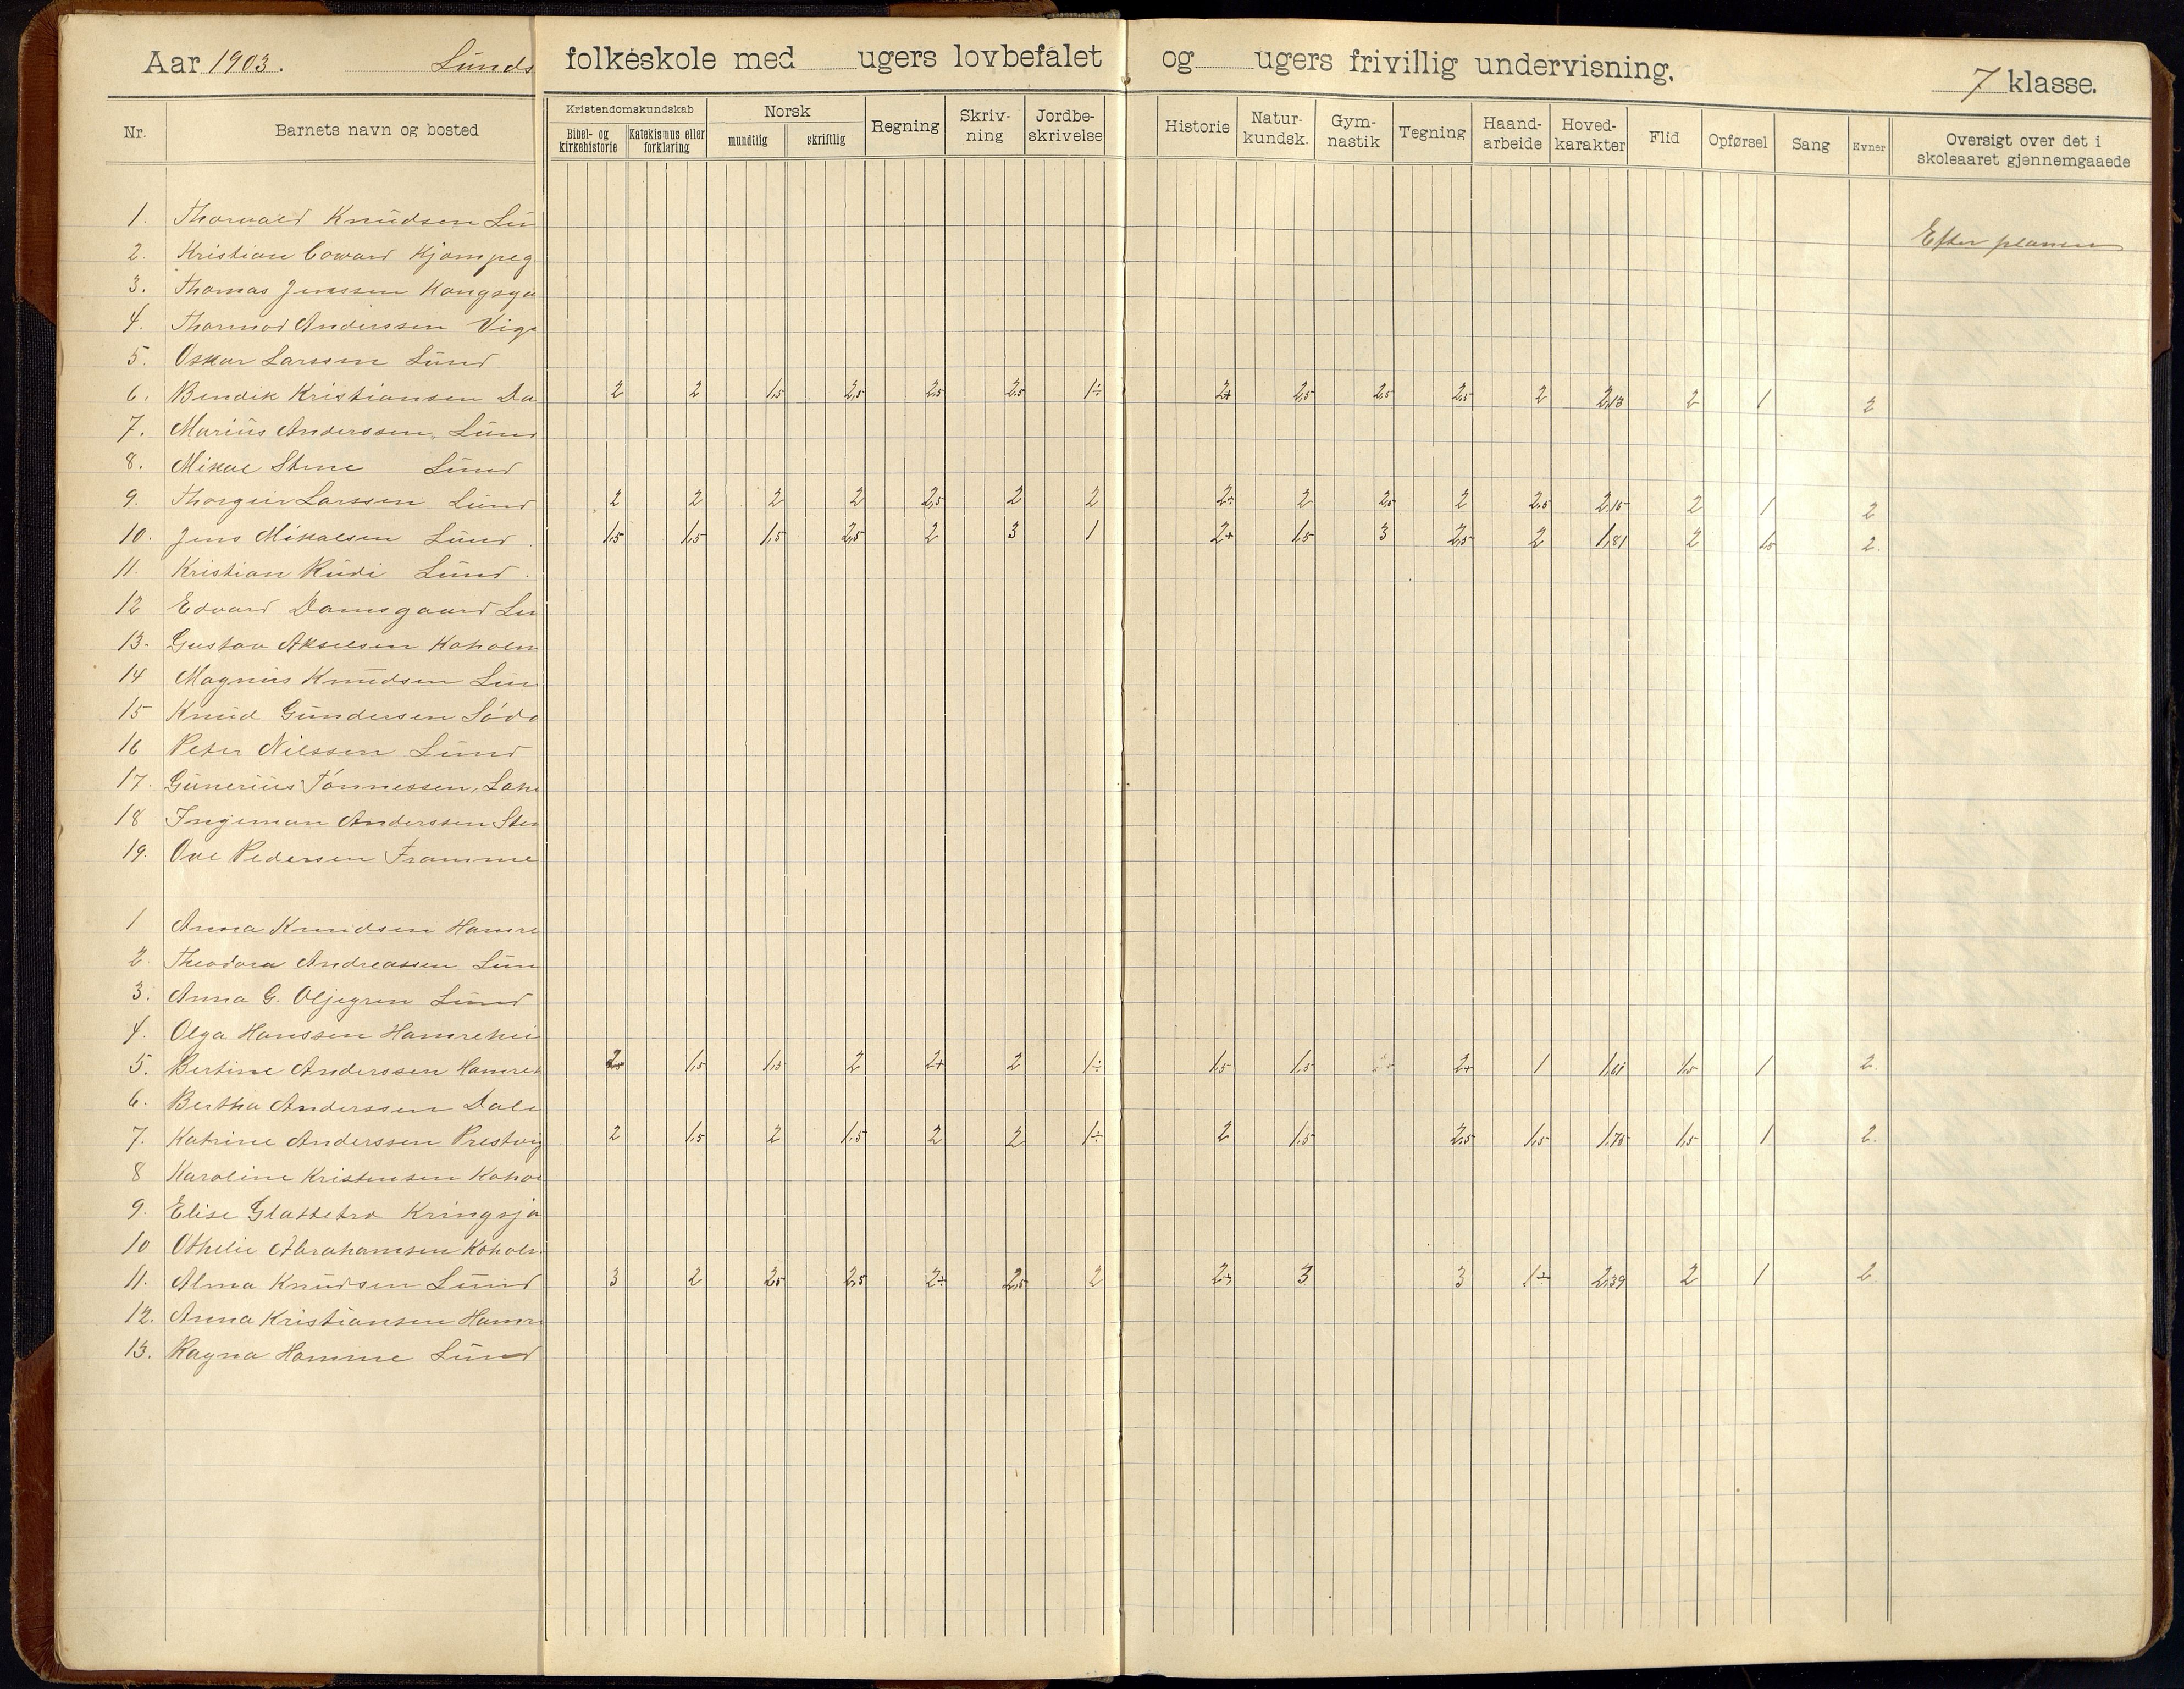 Aar 1903. Lunds folkeskole med ugers lovbefalet og ugers frivillig undervisning. 7 klasse.
Nr. Barnets navn og bosted Kristendomskundskab Bibel- og kirkehistorie Katekismus eller forklaring Norsk mundtlig skriftlig Regning Skrivning Jordbeskrivelse Historie Naturkundsk. Gymnastik Tegning Haandarbeide Hovedkarakter Flid Opførsel Sang Evner Oversigt over det i skoleaaret gjennemgaaede
1. Thorvald Knudsen Lu
Efter planen
2. Kristian Edward Kjømpeg
3. Thomas Jenssen Kongsga
4. Thormod Anderssen Vige
5. Oskar Larssen Lund
6. Bendik Kristiansen Da 2 2 1,5 2,5 2,5 2,5 1÷ 2+ 2,5 2,5 2,5 2 2,13 2 1 2
7. Marius Anderssen, Lund
8. Mikal Stene Lund
9. Thorgeir Larssen Lund 2 2 2 2 2,5 2 2 2÷ 2 2,5 2 2,5 2,15 2 1 2
10. Jens Mikalsen Lund 1,5 1,5 1,5 2,5 2 3 1 2+ 1,5 3 2,5 2 1,81 2 1,5 2.
11. Kristian Rudi Lund.
12 Edvard Damsgaard Lu
13. Gustav Akselsen Koholm
14 Magnus Knudsen Lun
15 Knud Gundersen Søda
16 Peter Nilssen Lund
17. Gunerius Tønnessen, Lahe
18 Ingeman Anderssen Ste
19. Ove Pedersen Framme
1 Anna Knudsen Hamre
2 Theodora Andreassen Lun
3. Anna G. Oljegren Lund
4. Olga Hanssen Hamrehei
5. Bertine Anderssen Hamreh 2 1,5 1,5 2 2+ 2 1÷ 1,5 1,5 2+ 1 1,61 1,5 1 2.
6. Bertha Anderssen Dale
7. Katrine Anderssen Prestvig 2 1,5 2 1,5 2 2 1÷ 2 1,5 2,5 1,5 1,75 1,5 1 2.
8 Karoline Kristensen Kohol
9. Elise Glattetre Kringsjå
10 Othelie Abrahamsen Kohol
11. Alma Knudsen Lund 3 2 2,5 2,5 2÷ 2,5 2 2÷ 3 3 1÷ 2,39 2 1 2
12. Anna Kristiansen Hamr
13. Ragna Homme Lund